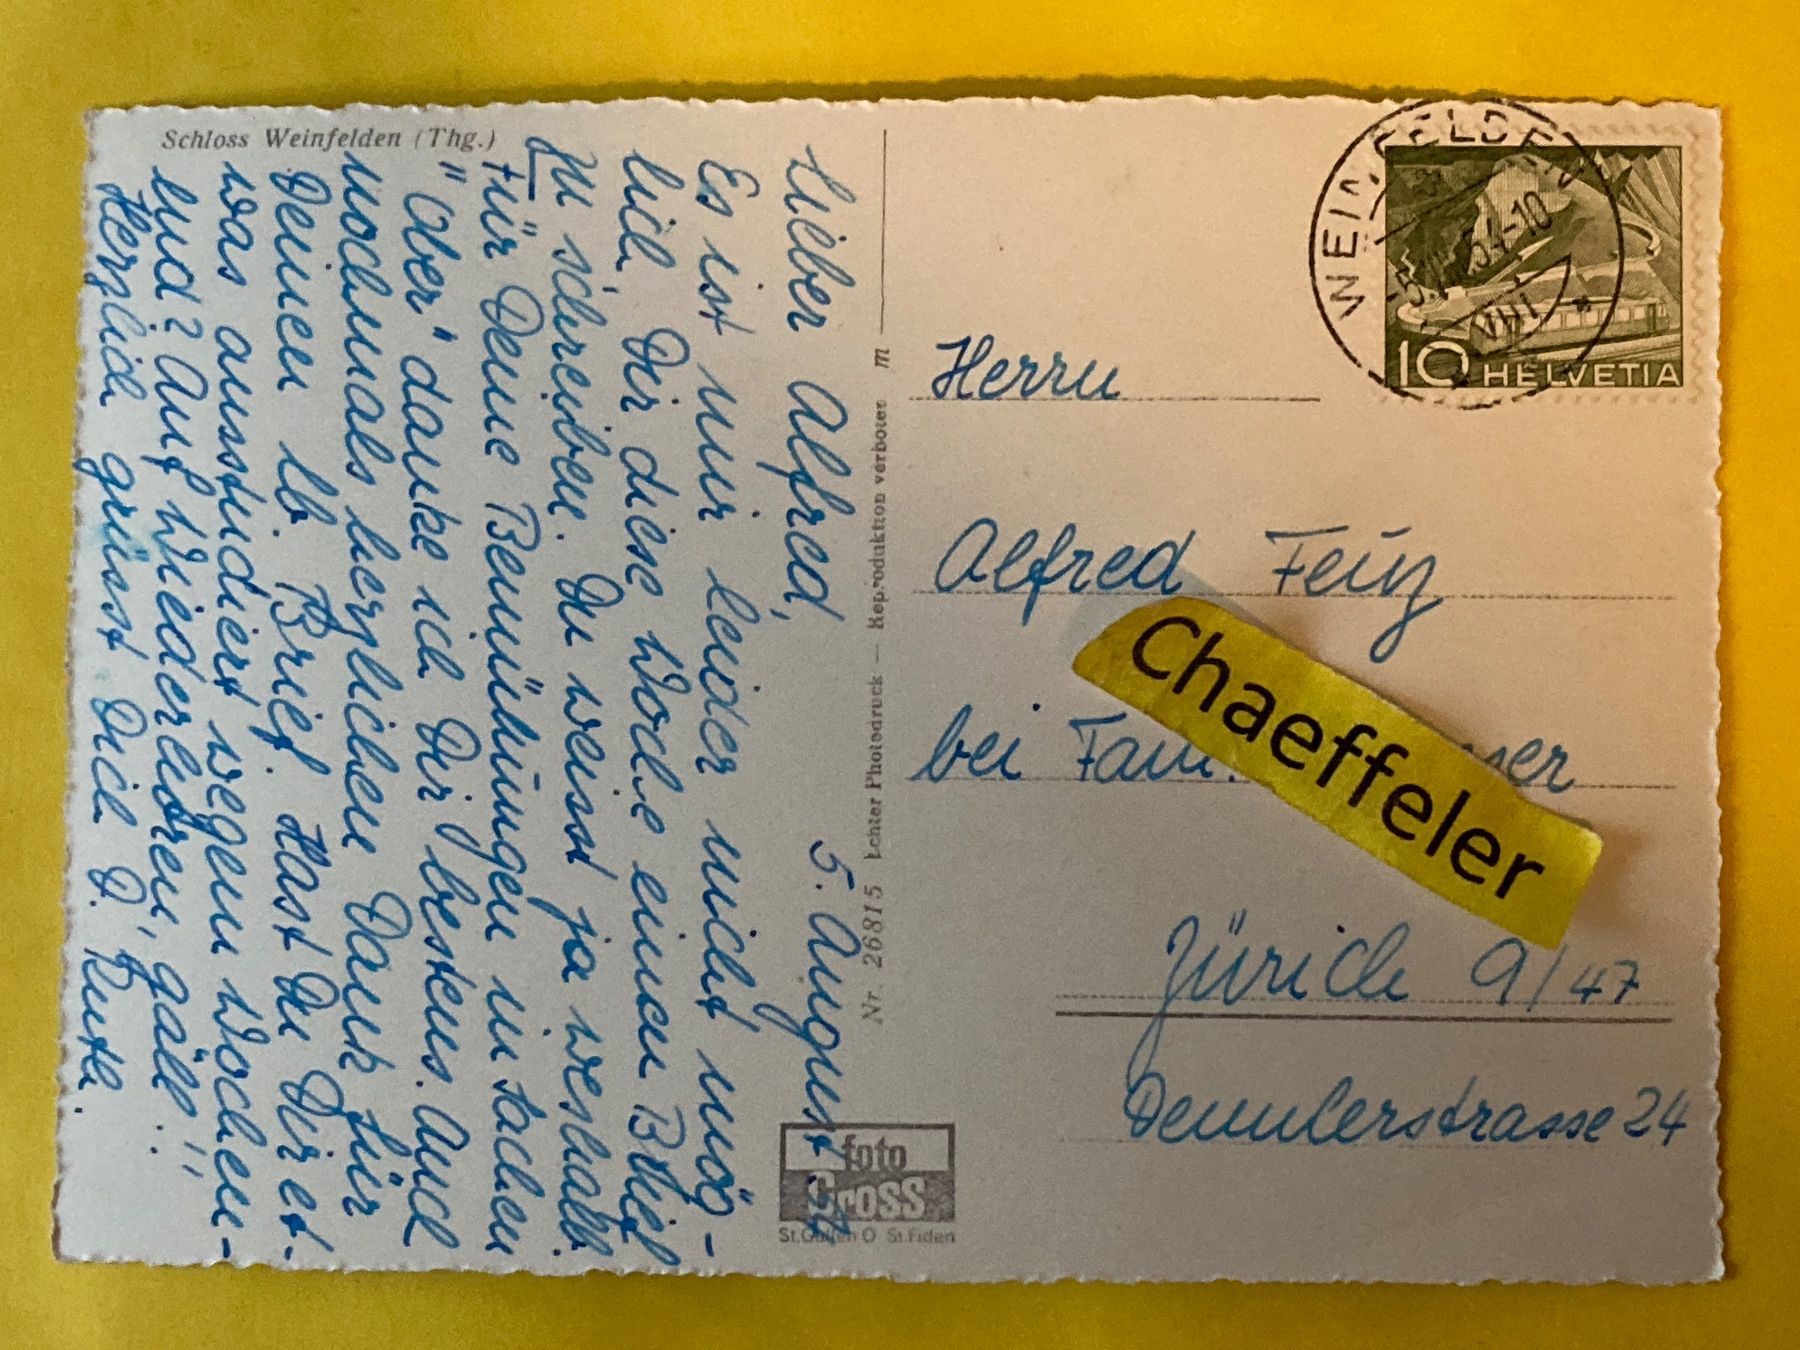 Schloss Weinfelden (Thg.)
5. August 54
Lieber Alfred,
Es ist mir leider nicht mög-
lich, Dir diese Woche einen Brief
zu schreiben. Du weisst ja weshalb.
Für Deine Bemühungen in sachen
"Ober" danke ich Dir bestens. Auch
nochmals herzlichen Dank für
Deinen lb. Brief. Hast Du Dir et-
was ausstudiert wegem Wochen-
end? Auf Wiederhören, gäll!!
Herzlich grüsst Dich D. Ruth.
Nr. 26815 Echter Photodruck — Reproduktion verboten m
foto
Gross
St.Gallen O St.Fiden
WEINFELDEN
VIII
10 HELVETIA
Herrn
Alfred Feiz
bei Fam.
Chaeffeler
Zürich 9/47
Dennlerstrasse 24